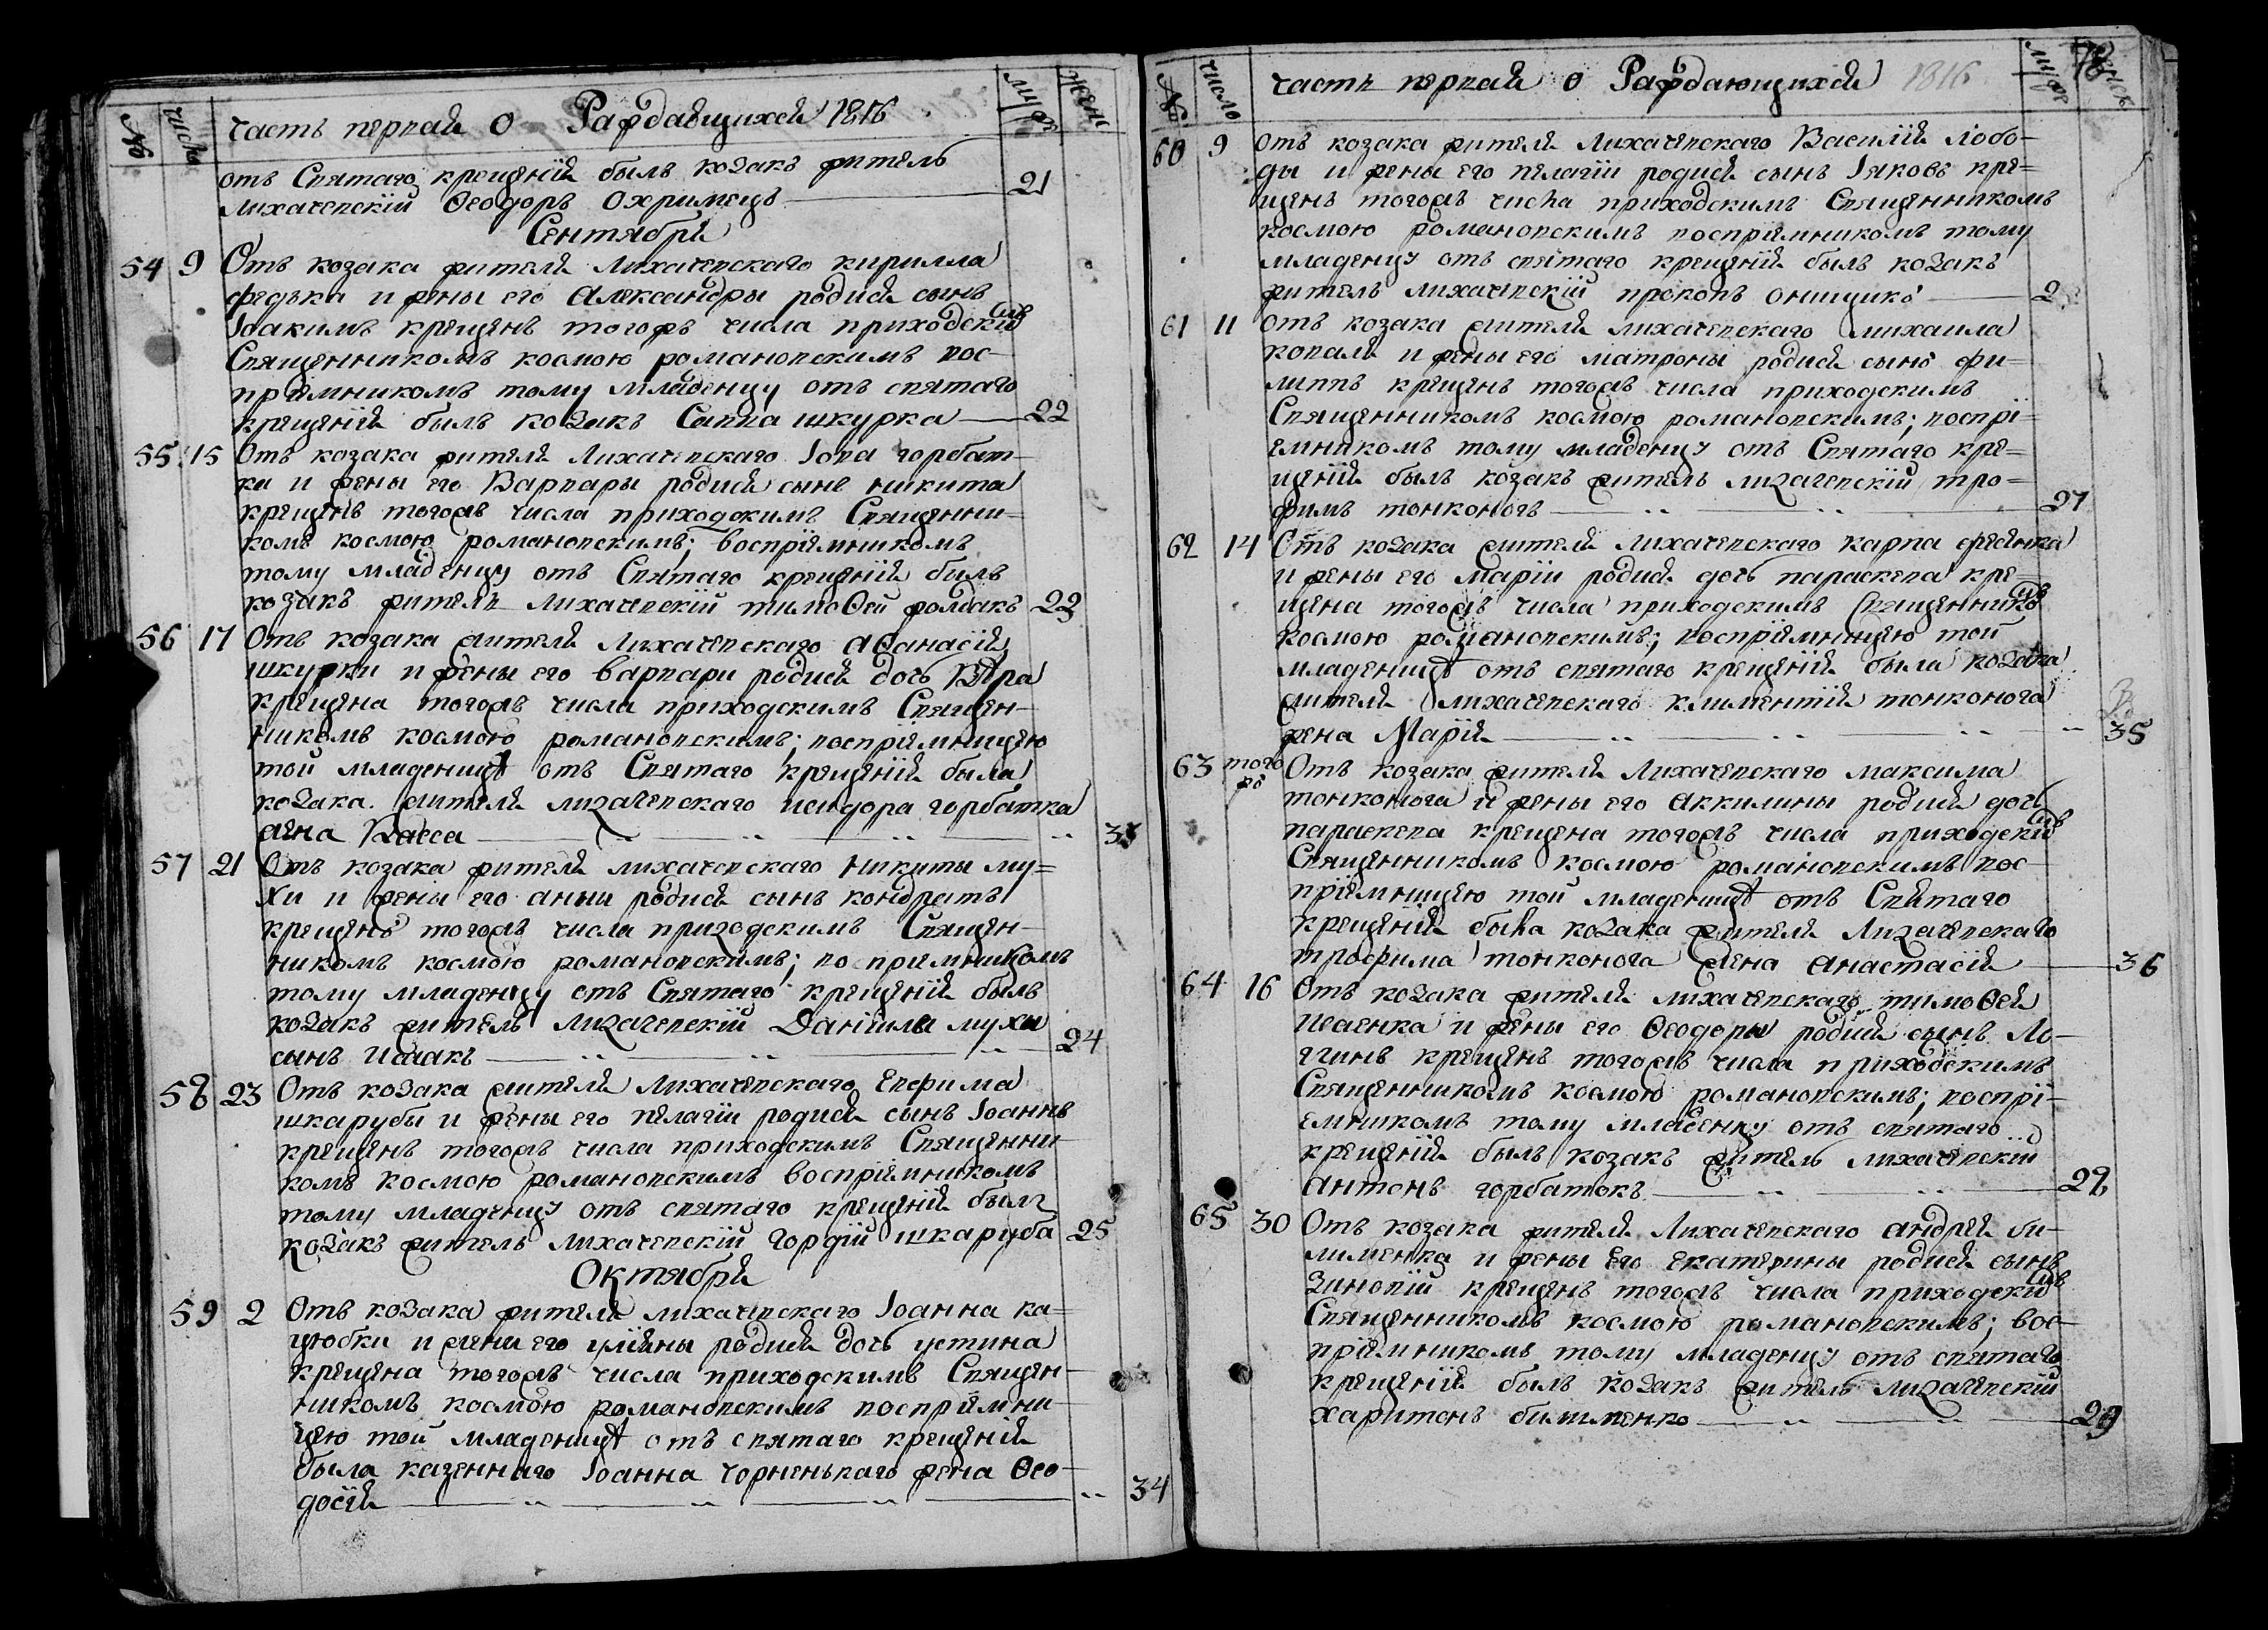 № число часть первая о Раждающихся 1816 муж женс
отъ Святаго крещенія былъ козакъ житель
Лихачевскій Ѳеодоръ Охримецъ 21
Сентября
54 9 Отъ козака жителя Лихачевскаго кирилла
федька и жены его Александры родися сынъ
Іоакимъ крещенъ тогожъ числа приходскимъ
Священникомъ космою романовскимъ вос-
пріемникомъ тому младенцу отъ святаго
крещенія былъ козакъ Савва шкурка 22
55 15 Отъ козака жителя Лихачевскаго Іова горбат-
ка и жены его Варвары родися сынъ никита
крещенъ тогожъ числа приходскимъ Священни-
комъ космою романовскимъ; воспріемникомъ
тому младенцу отъ Святаго крещенія былъ
козакъ житель Лихачевскій тимоѲей жолдакъ 23
56 17 Отъ козака жителя Лихачевскаго аѲанасія
шкурки и жены его варвари родися дочь Вѣра
крещена тогожъ числа приходскимъ Священ-
никомъ космою романовскимъ; воспріемницею
той младеницѣ отъ Святаго крещенія была
козака жителя лихачевскаго исидора горбатка
жена Васса 33
57 21 Отъ козака жителя лихачевскаго никиты му=
хи и жены его анни родися сынъ кондратъ
крещенъ тогожъ числа приходскимъ Священ-
никомъ космою романовскимъ; во пріемникомъ
тому младенцу отъ Святаго крещенія былъ
козакъ житель лихачевскій Даніила мухи
сынъ Исаакъ 24
58 23 Отъ козака жителя Лихачевскаго Евфима
шкарубы и жены его пелагіи родися сынъ Іоаннъ
крещенъ тогожъ числа приходскимъ Священни-
комъ космою романовскимъ воспріемникомъ
тому младенцу отъ святаго крещенія былъ
козакъ житель Лихачевскій Гордій шкаруба 25
Октября
59 2 Отъ козака жителя лихачевскаго Іоанна ка=
цюбки и жени его уліяны родися дочь устина
крещена тогожъ числа приходскимъ Священ-
никомъ космою романовскимъ воспріемни-
цею той младеницѣ отъ святаго крещенія
была казеннаго Іоанна чорненькаго жена Ѳео-
досія 34
№ число часть первая о Раждающихся 1816 муж женск 78
60 9 отъ козака жителя Лихачевскаго Василія лобо-
ды и жены его пелагіи родися сынъ Іяковъ кре=
щенъ тогожъ числа приходскимъ Священникомъ
космою романовскимъ воспріемникомъ тому
младенцу отъ святаго крещенія былъ козакъ
житель лихачевскій прокопъ онищико 2
61 11 отъ козака жителя лихачевскаго михаила
коваля и жены его матроны родися сынъ фи=
липпъ крещенъ тогожъ числа приходскимъ
Священникомъ космою романовскимъ; воспрі=
емникомъ тому младенцу отъ Святаго кре=
щенія былъ козакъ житель лихачевскій тро=
фимъ тонконогъ 27
62 14 Отъ козака жителя лихачевскаго карпа федька
и жены его Маріи родися дочь параскева кре-
щена тогожъ числа приходскимъ Священникомъ
космою романовскимъ; воспріемницею той
младеницѣ отъ святаго крещенія была козака
жителя лихачевскаго климентія тонконога
жена Марія 35
63 того же Отъ козака жителя Лихачевскаго максима
тонконога и жены его Аккилины родися дочь
параскева крещена тогожъ числа приходскимъ
Священникомъ космою романовскимъ вос-
пріемницею той младеницѣ отъ Святаго
крещенія была козака жителя Лихачевскаго
трофима тонконога жена анастасія 36
64 16 Отъ козака жителя лихачевскаго тимоѲея
исаенка и жены его Ѳеодоры родися сынъ Ло-
ггинъ крещенъ тогожъ числа приходскимъ
Священникомъ космою романовскимъ; воспрі-
емникомъ тому младенцу отъ святаго
крещенія былъ козакъ житель лихачевскій
антонъ горбатокъ 28
65 30 Отъ козака жителя Лихачевскаго андрея би-
лименка и жены его екатерины родися сынъ
Зиновій крещенъ тогожъ числа приходскимъ
Священникомъ космою романовскимъ; вос-
пріемникомъ тому младенцу отъ святаго
крещенія былъ козакъ житель лихачевскій
харитонъ билименко 29